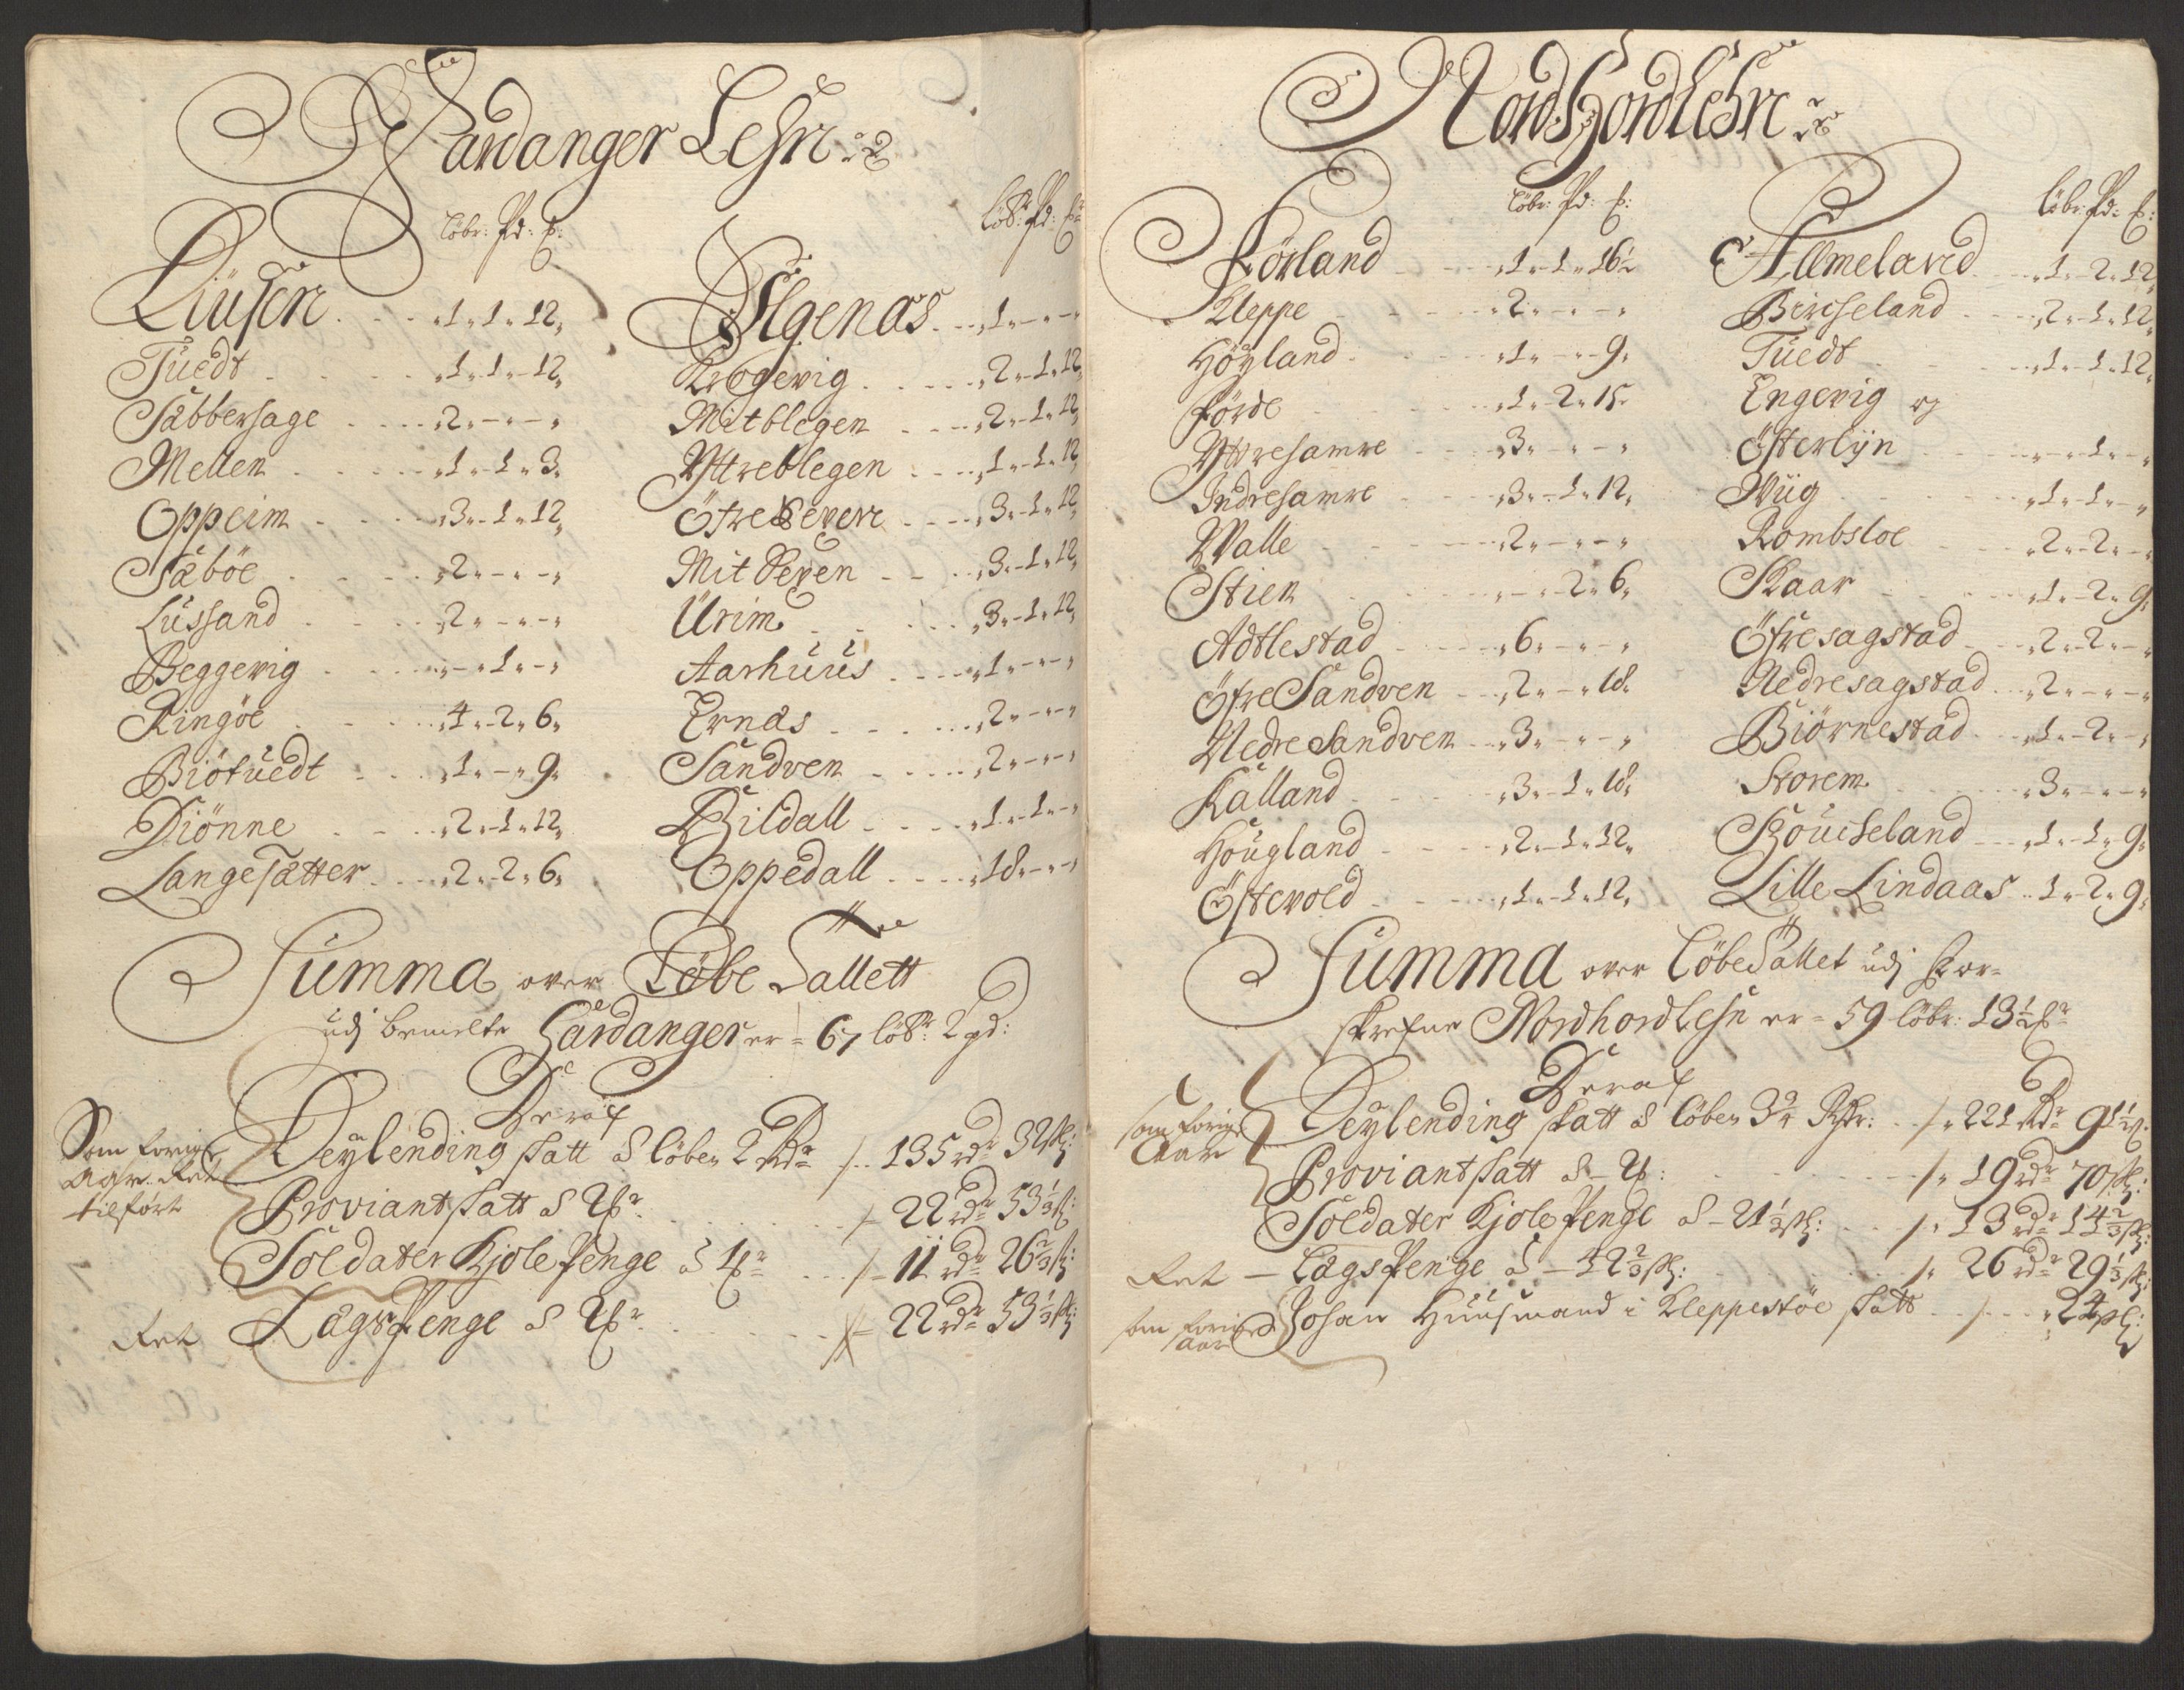 Hardanger Lehn
Löbr: Pd: ƀ:
Liusen 1 " 1 " 12
Tuedt 1 " 1 " 12
Sæbbersage 2 " - " -
Mellen 1 " 1 " 3
Oppeim 3 " 1 " 12
Sæböe 2 " - " -
Lussand 2 " - " -
Beggevig - " 1 " -
Ringöe 4 " 2 " 6
Biötuedt 1 " - " 9
Diönne 2 " 1 " 12
Langesætter 2 " 2 " 6
Löbr: Pd: ƀ:
Elgenæs 1 " - " -
Krogevig 2 " 1 " 12
Mitblegen 2 " 1 " 12
Yttreblegen 1 " 1 " 12
Öfre Seven 3 " 1 " 12
Mit Seven 3 " 1 " 12
Urim 3 " 1 " 12
Aarhuus 1 " - " -
Ernæs 2 " - " -
Sandven 2 " - " -
Bildall 1 " 1 " -
Oppedall 18 " - " -
Summa over Löbe Tallett
udj bemelte Hardanger er = 67 löbr: 2 pd:
Deraf
Som forige
tilfört
Leylending Skatt à löben 2 Rdr 135 rdr 32 sk:
Proviant Skatt à 22 rdr 53 1/3 sk:
Soldater Kjole Penge à 11 rdr 26 2/3 sk:
Ret Lægs Penge à 22 rdr 53 1/3 sk:
Nordhordlehn
Löbr: Pd: ƀ:
Förland 1 " 1 " 16 1/2
Kleppe 2 " - " -
Höyland 1 " - " 9
Förde 1 " 2 " 15
Yttresamre 3 " - " -
Indresamre 3 " 1 " 12
Walle 2 " - " -
Stien - " 2 " 6
Adtlestad 6 " - " -
Öfre Sandven 2 " - " 18
Nedre Sandven 3 " - " -
Kalland 3 " 1 " 18
Hougland 2 " 1 " 12
Östevold 1 " 1 " 12
Löbr: Pd: ƀ:
Allmeland 1 " 2 " 12
Bircheland 2 " 1 " 12
Tuedt 1 " 1 " 12
Engevig og
Österlijn - " 1 " -
Wiig 1 " 1 " -
Rombsloe 2 " 2 " -
Skaar 1 " 2 " 9
Öfresagstad 2 " 2 " -
Nedresagstad 2 " - " -
Biörnestad 1 " 2 " -
Skorem 3 " - " -
Houcheland 1 " 1 " 9
Lille Lindaas 1 " 2 " 9
Summa over Löbetallet udj For=
skrefne Nordhordlehn er = 59 löbr: 13 1/2 ƀr
Deraf
som forige
Aar
Leylending skatt à löben 221 rdr
Proviant Skatt à 19 rdr 70 sk:
Soldater Kjole Penge à 21 1/3 sk: 13 rdr 14 2/3 sk:
Ret - Lægs Penge à 42 2/3 sk: 26 rdr 29 1/3 sk:
som forige
Aar
Johan Huusmand i Kleppestöe Skatt 24 sk: